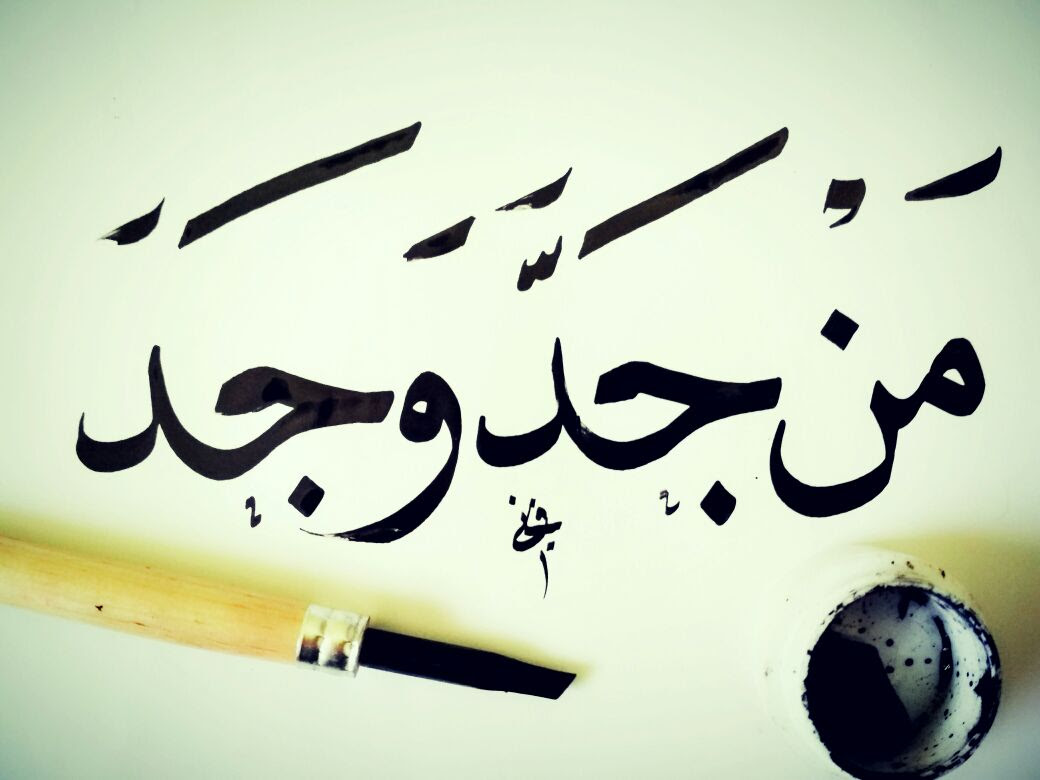 مَنْ جَدَّ وَجَدَ